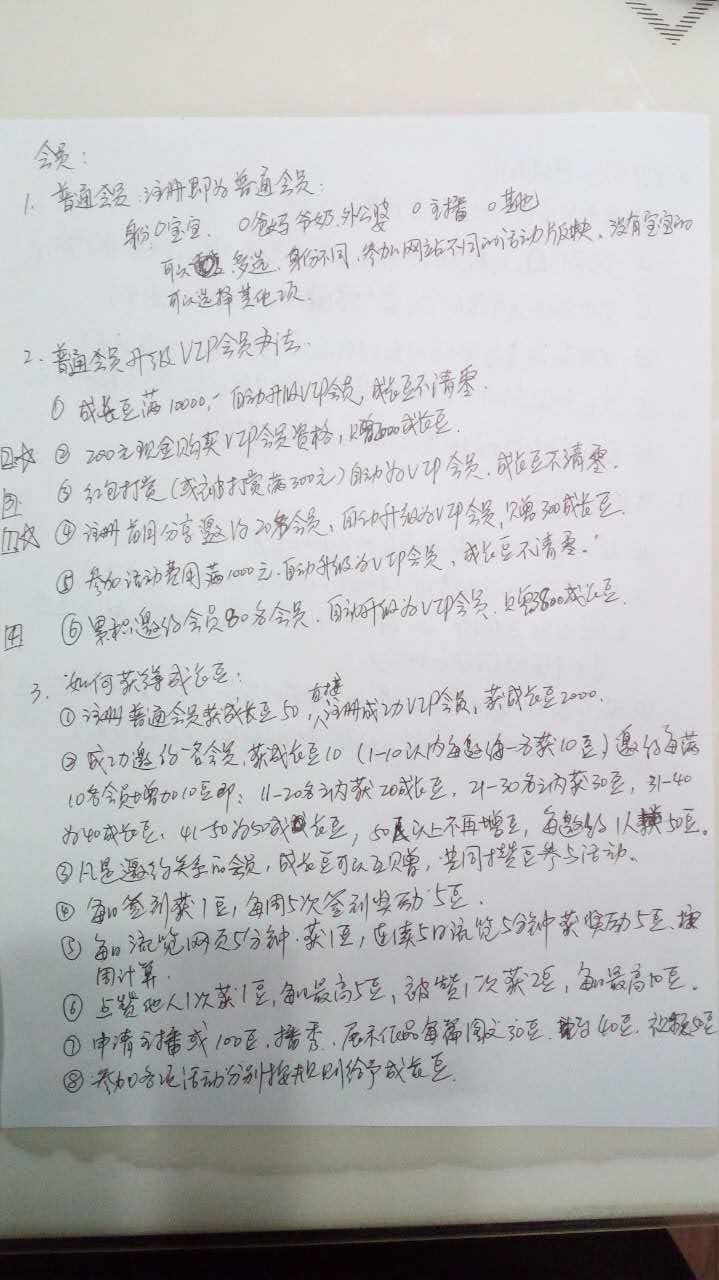 会员：
1. 普通会员：注册即为普通会员：
身份 O宝宝、 O爸妈 爷奶、外公婆 O 主播 O 其他
可以 多选、身份不同，参加网站不同的活动版块、没有宝宝的
可以选择其他项.
2. 普通会员升级VIP会员办法.
① 成长豆满10000,一自动升级VIP会员, 成长豆不清零.
2☆ ② 200元现金购买VIP会员资格, 赠2000成长豆.
3 ③ 红包打赏(或被打赏满300元)自动为VIP会员、成长豆不清零.
1☆ ④ 注册首周分享邀约20名会员, 自动升级为VIP会员, 赠300成长豆.
⑤ 参加活动费用满1000元.自动升级为VIP会员, 成长豆不清零.
4 ⑥ 累积邀约会员80名会员.自动升级为VIP会员.赠3800成长豆.
3. 如何获得成长豆:
① 注册普通会员获成长豆50, 直接注册成功VIP会员, 获成长豆2000.
② 成功邀约一名会员, 获成长豆10 (1-10以内每邀约一方获10豆)邀约每满
10名会员增加10豆即: 11-20名之内获20成长豆. 21-30名之内获30豆, 31-40
为40成长豆. 41-50为50成长豆, 50以上不再增豆, 每邀约1人 50豆。
③ 凡是邀约关系的会员, 成长豆可以互赠, 共同攒豆参与活动。
④ 每日签到获1豆, 每周5次签到奖励5豆.
⑤ 每日浏览网页5分钟.获1豆, 连续5日浏览5分钟获奖励5豆.按
周计算.
⑥ 点赞他人1次获1豆, 每日最高5豆, 被赞1次获2豆, 每日最高10豆.
⑦ 申请主播或100豆, 播秀、展示作品每篇图文30豆. 40豆. 视频
⑧ 参加各项活动分别按规则给予成长豆.